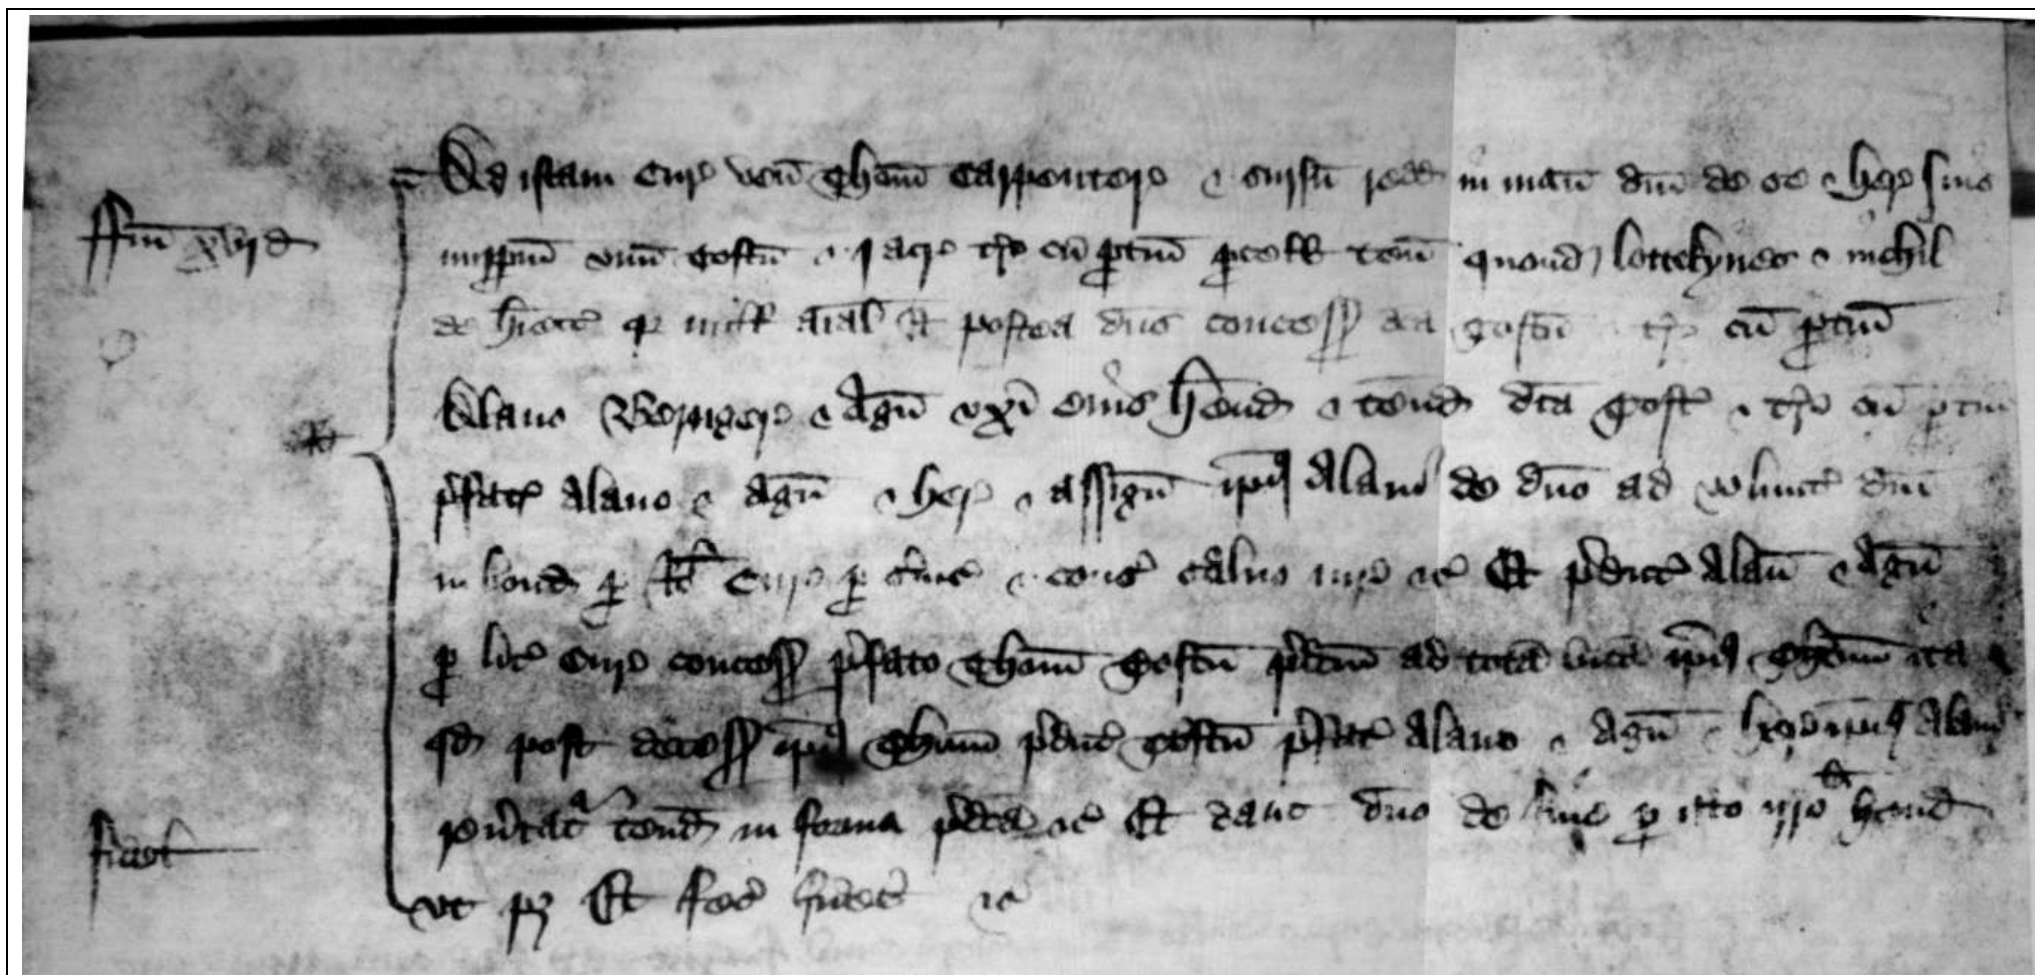 Ad istam Cur' ven' Thom' Carpenter' & sursu' redd' in man' dni' de se & her' suis
imppm' unu' Toftu' & j acr' t're cu' ptin' pcell' ten' quond' lottekynes & nichil
de h'iett' q' null' a'ial' Et postea dns concess' d'ca Toftu' & t're cu' ptin'
Alano Beringer' & Agn' ux'i eius H'end' & tenend' d'ca Toft' & t're cu' ptin'
p'fat' Alano & Agn' & her' & assign' ip'ius Alani de dno ad volunt' dni
in bond' p Rotl' Cur' p s'vic' & cons' salvo iure &c' Et p'dict' Alan' & Agn'
p lic' Cur' concess' p'fato Thom' Toftu' p'dcm' ad tota' vita' ip'ius Thom' ita
qd post decess' ip'ius Thom' p'dict' Toftu' p'fat' Alano & Agn' & her' ip'ius Alani
rev'tat' tenend' in forma p'dca &c' Et dant dno de fine p isto ingr' & h'end'
ut p3 Et fec' fidelit' &c'
Fin' xld
fidel'